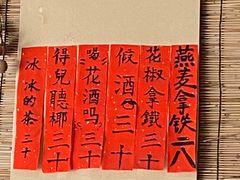 燕麦拿铁二八
花椒拿鐵三十
假酒三十
喝花酒吗三十
得兒聽椰三十
冰冰的茶三十